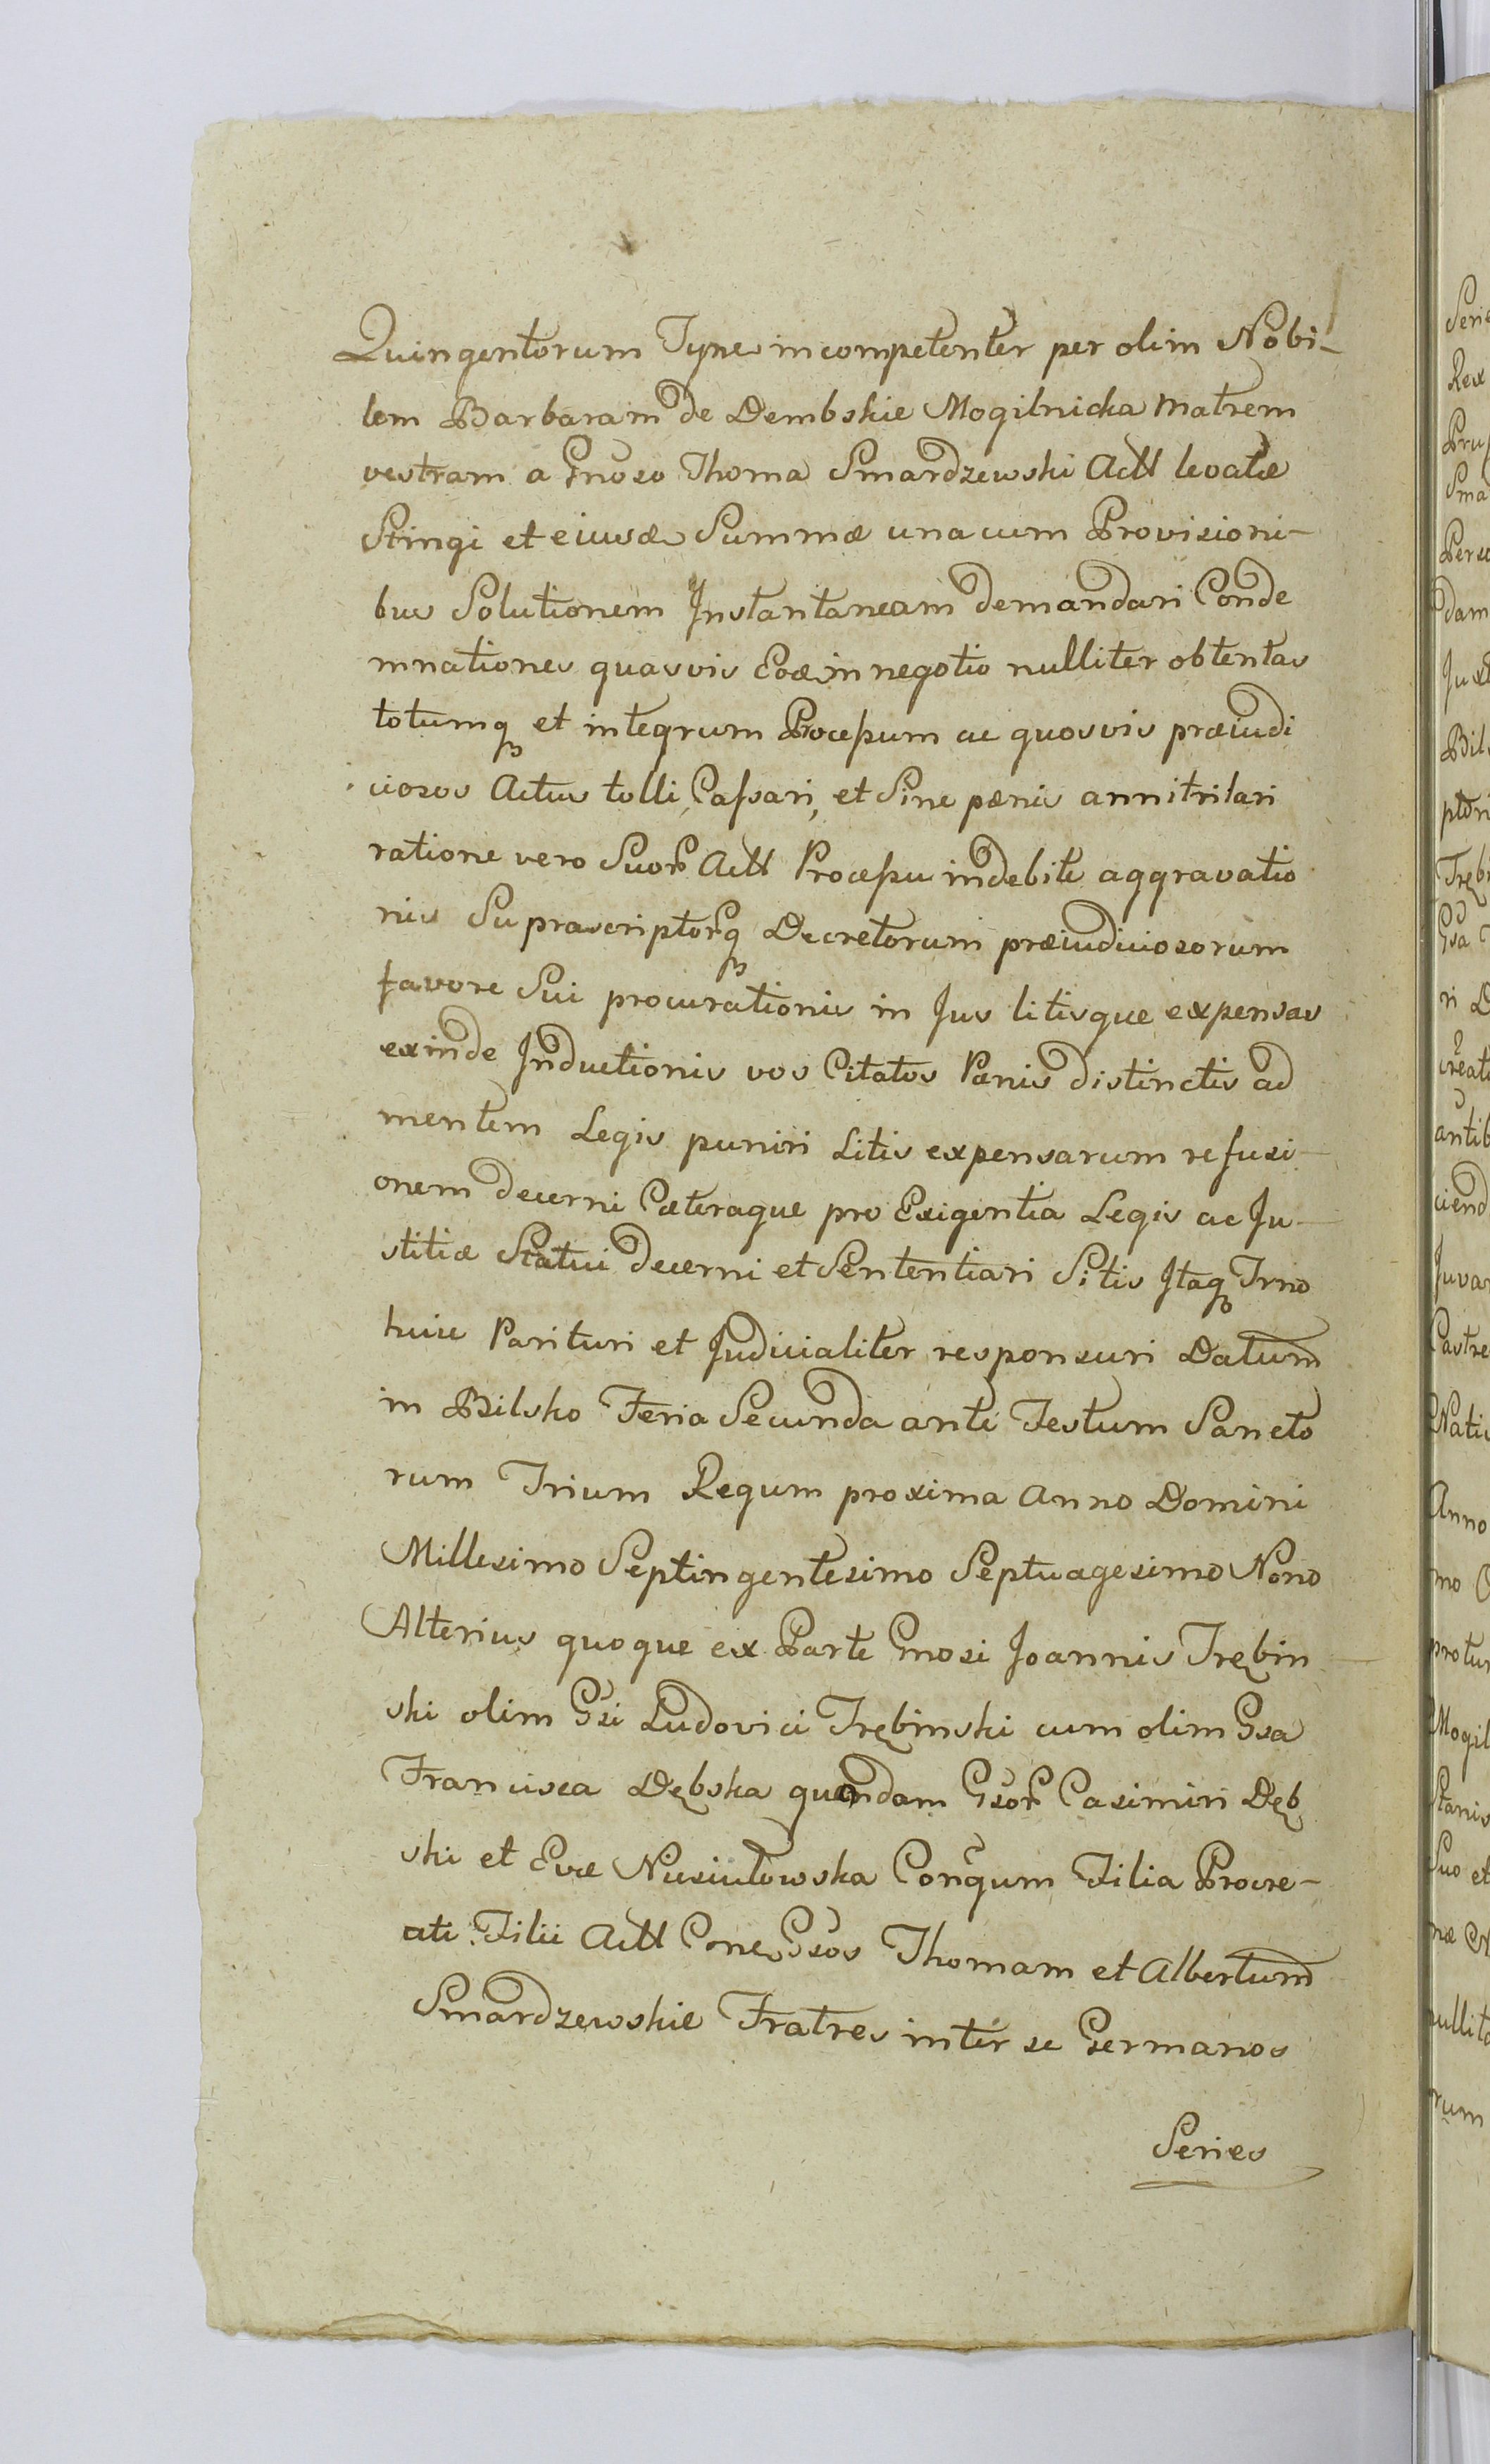 Quingentorum Type incompetenter per olim Nobi-
lem Barbaram de Dembskie Mogilnicka Matrem
vestram a Gnoso Thoma Smardzewski Actt levatæ
Stingi et eiusdæ Summæ una cum Provisioni-
bus Solutionem Instantaneam demandari Conde
mnationes quasvis Eoæ in negotio nulliter obtentas
totumq et integrum Processum ac quosvis præiudi
ciosos Actus tolli, Cassari, et Sine pænis annitrilari
ratione vero Suor Actt Processu indebite aggravatio
nis Suprascriptorq Decretorum præiudiciosorum
favore Sui procurationis in Jus litisque expensas
exinde Inductionis vos Citatos Pænis distinctis ad
mentem Legis puniri Litis expensarum refusi-
onem decerni Cæteraque pro Exigentia Legis ac Ju-
stitiæ Statui decerni et Sententiari Sitis Itaq Trno
huic Parituri et Judicialiter responsuri Datum
in Bilsko Feria Secunda ante Festum Sancto
rum Trium Regum proxima Anno Domini
Millesimo Septingentesimo Septuagesimo Nono
Alterius quoque ex Parte Gnosi Joannis Trębin
ski olim Gsi Ludovici Trębinski cum olim Gsa
Francisca Dębska quondam Gsor Casimiri Dęb
ski et Evæ Niesiulowska Congum Filia Procre-
ati Filii Actt Cone Gsos Thomam et Albertum
Smardzewskie Fratres inter se Germanos
Series